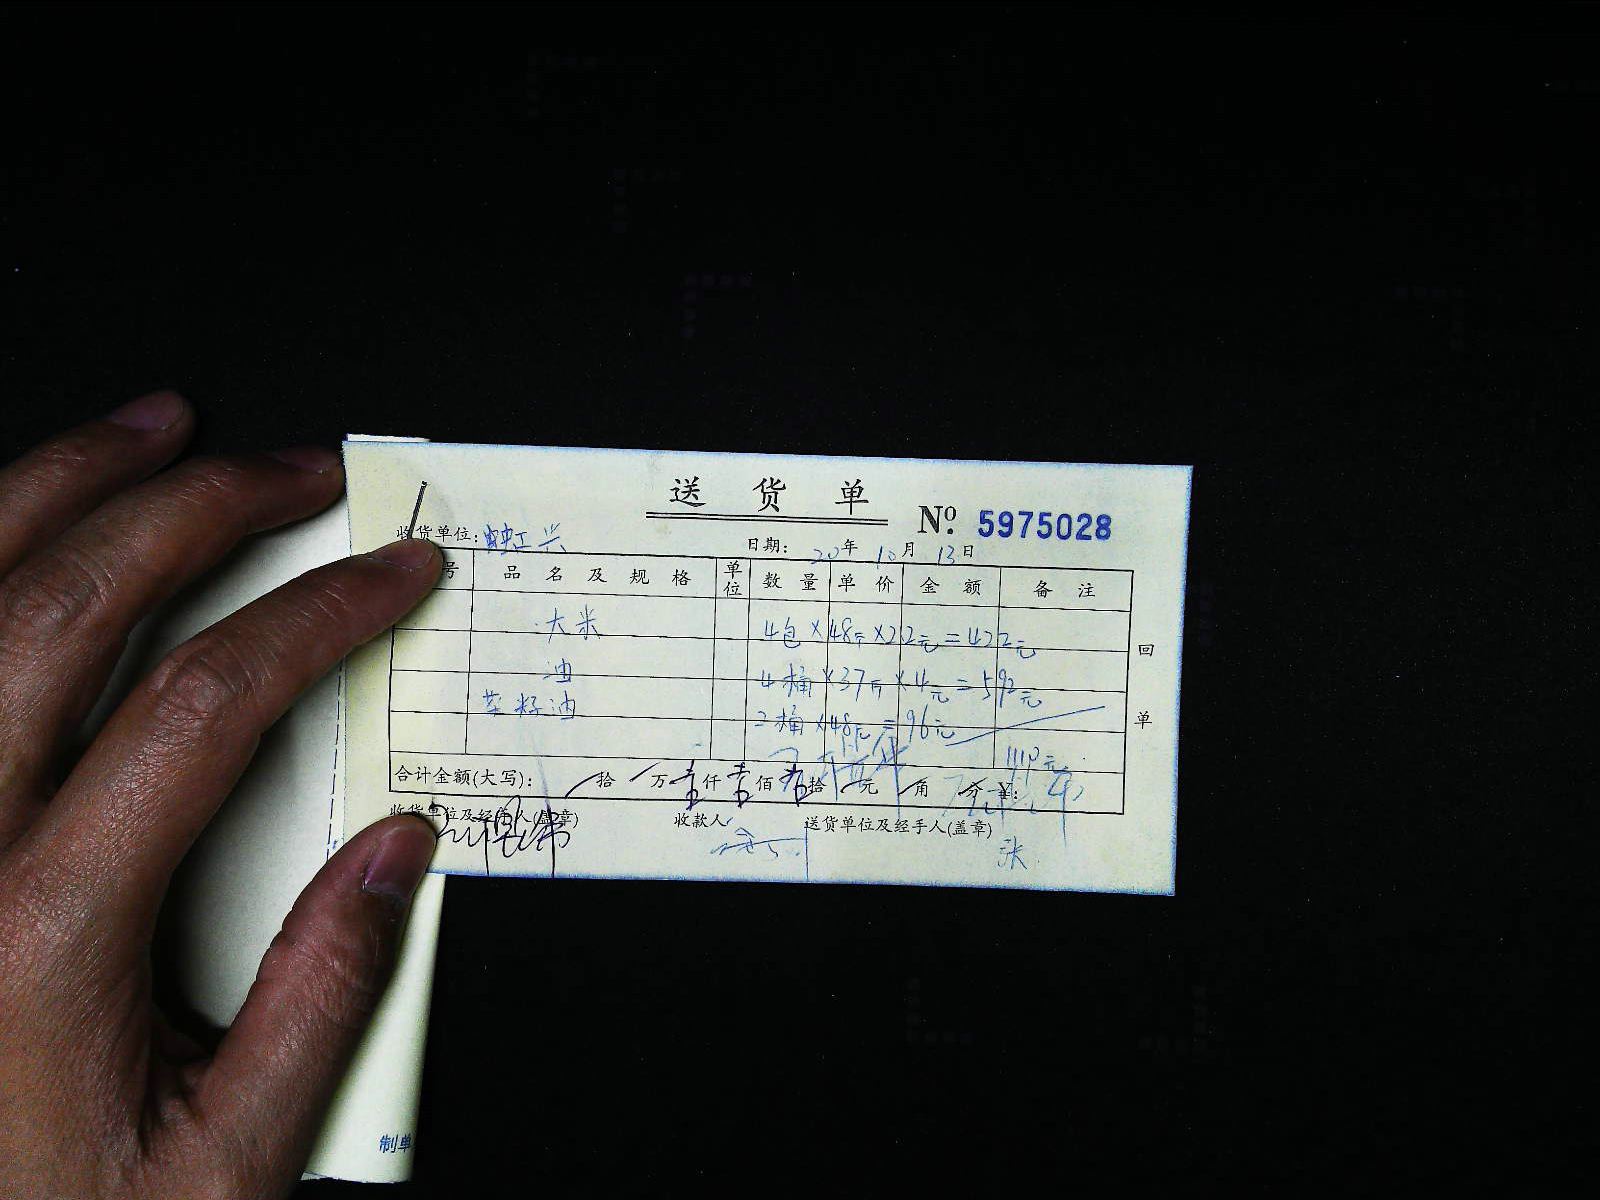 送货单
№ 5975028
收货单位:
日期: 20年10月13日
号 品名及规格 单位 数量 单价 金额 备注
大米 4包×48斤×2.2元=422元
油 4桶×37斤×4元=592元
菜籽油 2桶×48元=96元
1110元
合计金额(大写): 拾 万壹仟壹佰 拾 元 角 分 ¥:
收货单位及经手人(盖章) 收款人: 送货单位及经手人(盖章)
张
回单
制单